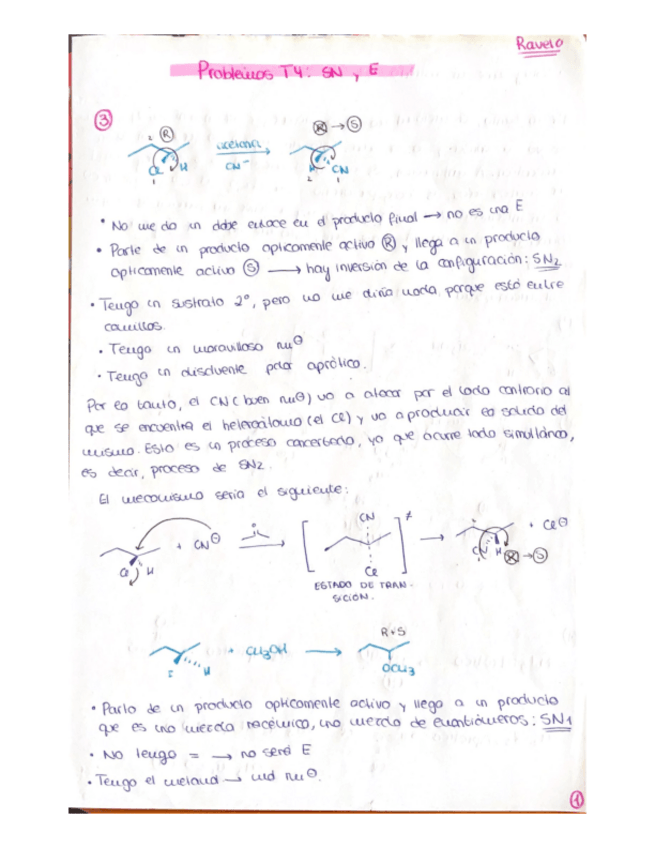 Ravelo
Problemas T4: SN y E
③
2 Ⓡ acetona Ⓡ → Ⓢ
Cl H CN⁻ H CN
1 2 1
• No me da un doble enlace en el producto final → no es una E
• Parte de un producto ópticamente activo Ⓡ y llega a un producto
ópticamente activo Ⓢ → hay inversión de la configuración: SN2
• Tengo un sustrato 2º, pero no me diría nada, porque está entre
caminos.
• Tengo un maravilloso nu⊖
• Tengo un disolvente polar aprótico.
Por lo tanto, el CN (buen nu⊖) va a atacar por el lado contrario al
que se encuentra el heteroátomo (el Cl) y va a producir la salida del
mismo. Esto es un proceso concertado, ya que ocurre todo simultáneo,
es decir, proceso de SN2.
El mecanismo sería el siguiente:
CN ≠
+ CN⊖ → → + Cl⊖
Cl H Cl CN H Ⓡ → Ⓢ
ESTADO DE TRAN-
SICIÓN.
R+S
+ CH₃OH →
I H OCH₃
• Parto de un producto ópticamente activo y llego a un producto
que es una mezcla racémica, una mezcla de enantiómeros: SN1
• No tengo = → no será E
• Tengo el metanol → mal nu⊖.
①